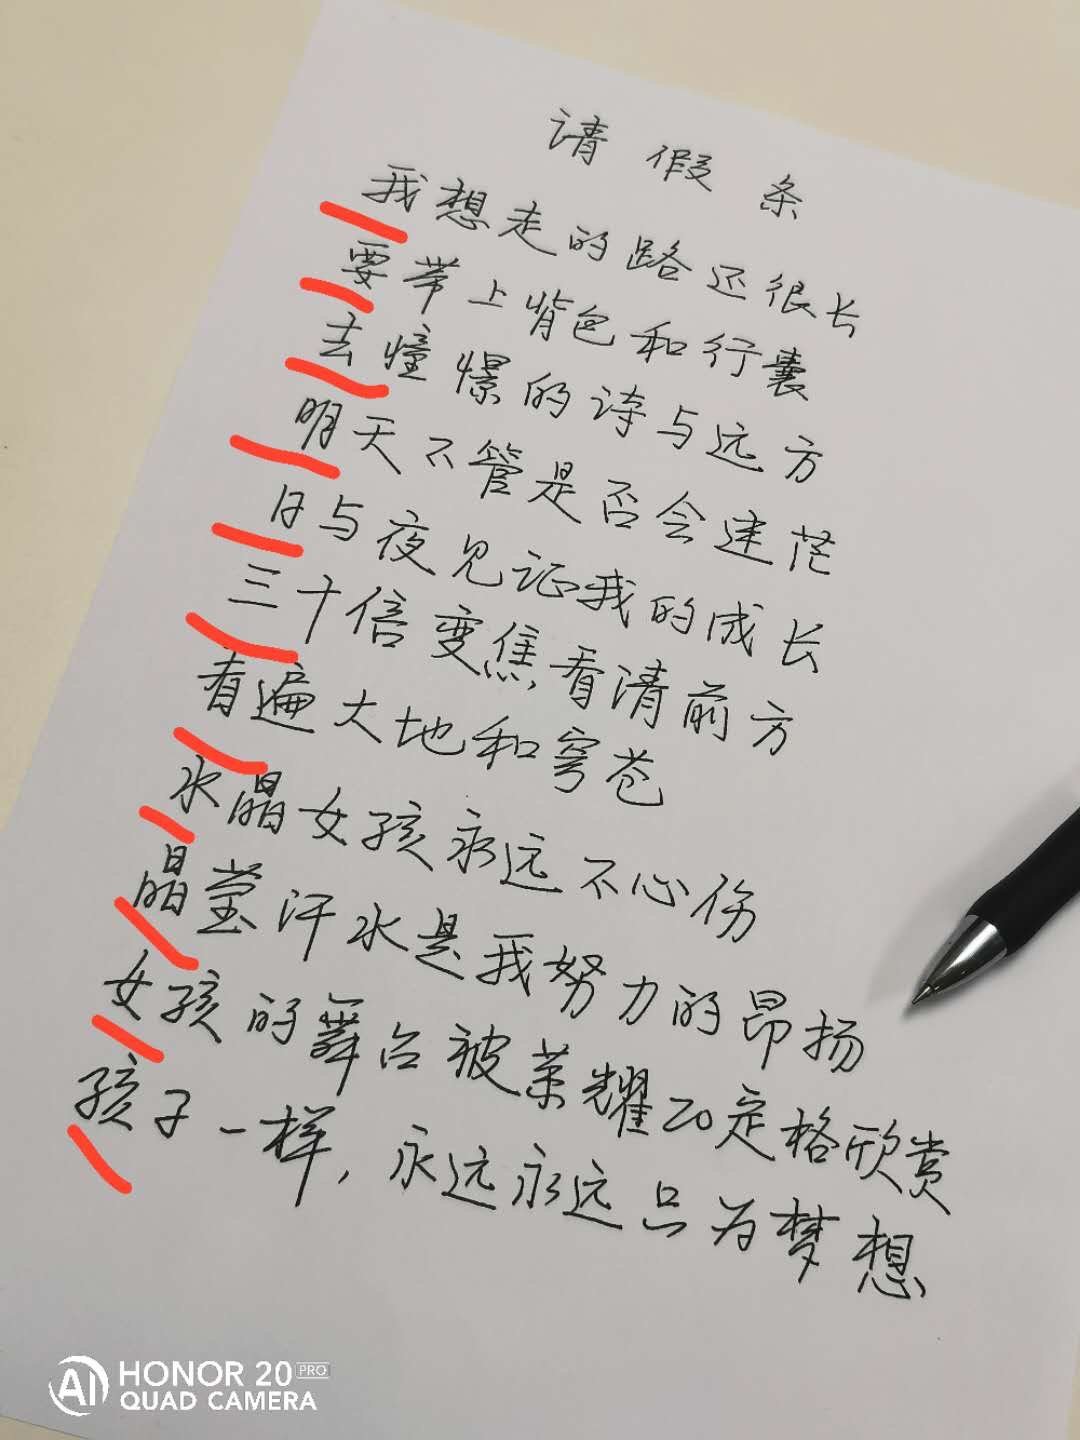 请假条
我想走的路还很长
要带上背包和行囊
去憧憬的诗与远方
明天不管是否会迷茫
日与夜见证我的成长
三十倍变焦看清前方
看遍大地和穹苍
水晶女孩永远不心伤
晶莹汗水是我努力的昂扬
女孩的舞台被荣耀20定格欣赏
孩子一样，永远永远只为梦想
AI HONOR 20 PRO
QUAD CAMERA